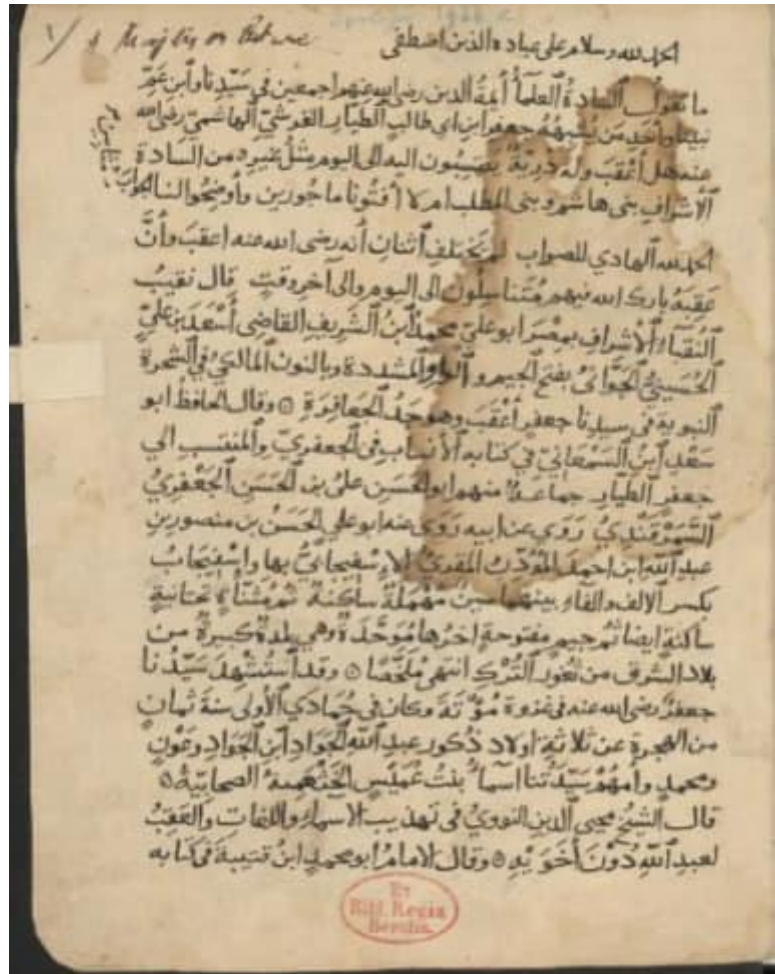 الحمد لله وسلام على عباده الذين اصطفى
ما تقول السادة العلماء أئمة الدين رضي الله عنهم اجمعين في سيدنا وابن عم
نبينا وأحد من يشبهه جعفر ابن ابي طالب الطيار القرشي الهاشمي رضي الله
عنه هل أعقب وله ذرية ينتسبون اليه الى اليوم مثل غيره من السادة
الأشراف بني هاشم وبني المطلب ام لا أفتونا ماجورين وأوضحوا لنا الجواب
الحمد لله الهادي للصواب لم يختلف اثنان أنه رضي الله عنه اعقب وأن
عقبه بارك الله فيهم متناسلون الى اليوم والى آخر وقت قال نقيب
النقباء الأشراف بمصر ابو علي محمد ابن الشريف القاضي أسعد بن علي
الحسيني الجواني بفتح الجيم والواو المشددة وبالنون المالكي في الشجرة
النبوية في سيدنا جعفر أعقب وهو جد الجعافرة ۞ وقال الحافظ ابو
سعد ابن السمعاني في كتابه الأنساب في الجعفري والمنتسب الى
جعفر الطيار جماعة منهم ابو الحسن علي بن الحسن الجعفري
السمرقندي روى عن ابيه روى عنه ابو علي الحسن بن منصور بن
عبد الله ابن احمد المؤدب المقري الاسفيجابي بها واسفيجاب
بكسر الالف والفاء بينهما سين مهملة ساكنة ثم مثناة تحتانية
ساكنة ايضا ثم جيم مفتوحة اخرها موحدة وهي بلدة كبيرة من
بلاد الشرق من ثغور الترك انتهى ملخصا ۞ وقد استشهد سيدنا
جعفر رضي الله عنه في غزوة مؤتة وكان في جمادى الأولى سنة ثمان
من الهجرة عن ثلاثة اولاد ذكور عبد الله الجواد ابن الجواد وعون
ومحمد وأمهم سيدتنا اسماء بنت عميس الخثعمية الصحابية ۞
قال الشيخ محيي الدين النووي في تهذيب الاسماء واللغات والعقب
لعبد الله دون أخويه ۞ وقال الامام ابو محمد ابن قتيبة في كتابه
Ex
Bibl. Regia
Berolin.